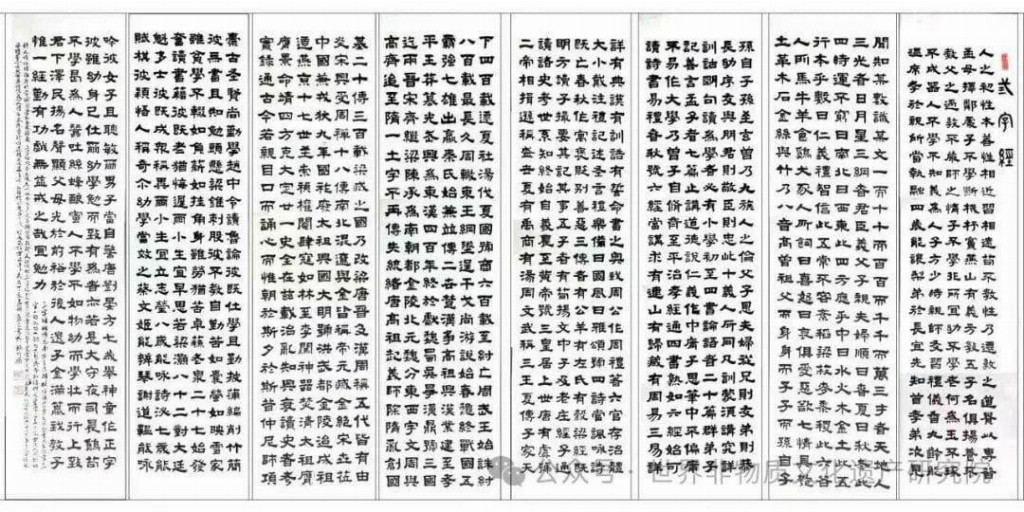 弎字經
人之初性本善性相近習相遠苟不教性乃遷教之道貴以專昔
孟母擇鄰處子不學斷機杼竇燕山有義方教五子名俱揚養不
教父之過教不嚴師之惰子不學非所宜幼不學老何為玉不琢
不成器人不學不知義為人子方少時親師友習禮儀香九齡能
溫席孝於親所當執融四歲能讓梨弟於長宜先知首孝弟次見
聞知某數識某文一而十十而百百而千千而萬三才者天地人
三光者日月星三綱者君臣義父子親夫婦順曰春夏曰秋冬此
四時運不窮曰南北曰西東此四方應乎中曰水火木金土此五
行本乎數曰仁義禮智信此五常不容紊稻粱菽麥黍稷此六穀
人所食馬牛羊雞犬豕此六畜人所飼曰喜怒曰哀懼愛惡欲七情具匏
土革木石金絲與竹乃八音高曾祖父而身身而子子而孫自子
孫自子孫至元曾乃九族人之倫父子恩夫婦從兄則友弟則恭
長幼序友與朋君則敬臣則忠此十義人所同凡訓蒙須講究詳
訓詁明句讀為學者必有初小學終至四書論語者二十篇群弟子
記善言孟子者七篇止講道德說仁義作中庸子思筆中不偏庸
不易作大學乃曾子自修齊至平治孝經通四書熟如六經始可
讀詩書易禮春秋號六經當講求有連山有歸藏有周易三易詳
詳有典謨有訓誥有誓命書之奧我周公作周禮著六官存治體
大小戴註禮記述聖言禮樂備曰國風曰雅頌號四詩當諷詠詩
既亡春秋作寓褒貶別善惡三傳者有公羊有左氏有穀梁經既
明方讀子撮其要記其事五子者有荀揚文中子及老莊經子通
讀諸史考世系知終始自羲農至黃帝號三皇居上世唐有虞號
二帝相揖遜稱盛世夏有禹商有湯周文武稱三王夏傳子家天
下四百載遷夏社湯伐夏國號商六百載至紂亡周武王始誅紂
八百載最長久周轍東王綱墜逞干戈尚游說始春秋終戰國五
霸強七雄出嬴秦氏始兼并傳二世楚漢爭高祖興漢業建至孝
平王莽篡光武興為東漢四百年終於獻魏蜀吳爭漢鼎號三國
迄兩晉宋齊繼梁陳承為南朝都金陵北元魏分東西宇文周與
高齊迨至隋一土宇不再傳失統緒唐高祖起義師除隋亂創國
基二十傳三百載梁滅之國乃改梁唐晉及漢周稱五代皆有由
炎宋興受周禪十八傳南北混遼與金皆稱帝元滅金絕宋世莅
中國兼戎狄九十年國祚廢太祖興國大明號洪武都金陵迨成祖
遷燕京十七世至崇禎權閹肆寇如林李闖出神器焚清太祖
膺景命靖四方克大定廿一史全在茲載治亂知興衰讀史者考
實錄通古今若親目口而誦心而惟朝於斯夕於斯昔仲尼師項
橐古聖賢尚勤學趙中令讀魯論彼既仕學且勤披蒲編削竹簡
彼無書且知勉頭懸梁錐刺股彼不教自勤苦如囊螢如映雪家
雖貧學不輟如負薪如挂角身雖勞猶苦卓蘇老泉二十七始發
奮讀書籍彼既老猶悔遲爾小生宜早思若梁灝八十二對大廷
魁多士彼既成眾稱異爾小生宜立志瑩八歲能詠詩泌七歲能
賦棋彼穎悟人稱奇爾幼學當效之蔡文姬能辨琴謝道韞能詠
吟彼女子且聰敏爾男子當自警唐劉晏方七歲舉神童作正字
彼雖幼身已仕爾幼學勉而致有為者亦若是犬守夜雞司晨苟
不學曷為人蠶吐絲蜂釀蜜人不學不如物幼而學壯而行上致
君下澤民揚名聲顯父母光於前裕於後人遺子金滿籯我教子
惟一經勤有功戲無益戒之哉宜勉力
公众号·世界非物质文化遗产研究院